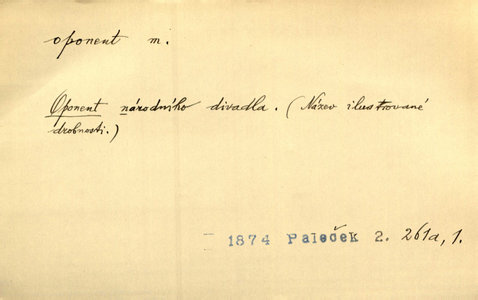 oponent m.
Oponent národního divadla. (Název ilustrované
drobnosti.)
1874 Paleček 2. 261a, 1.